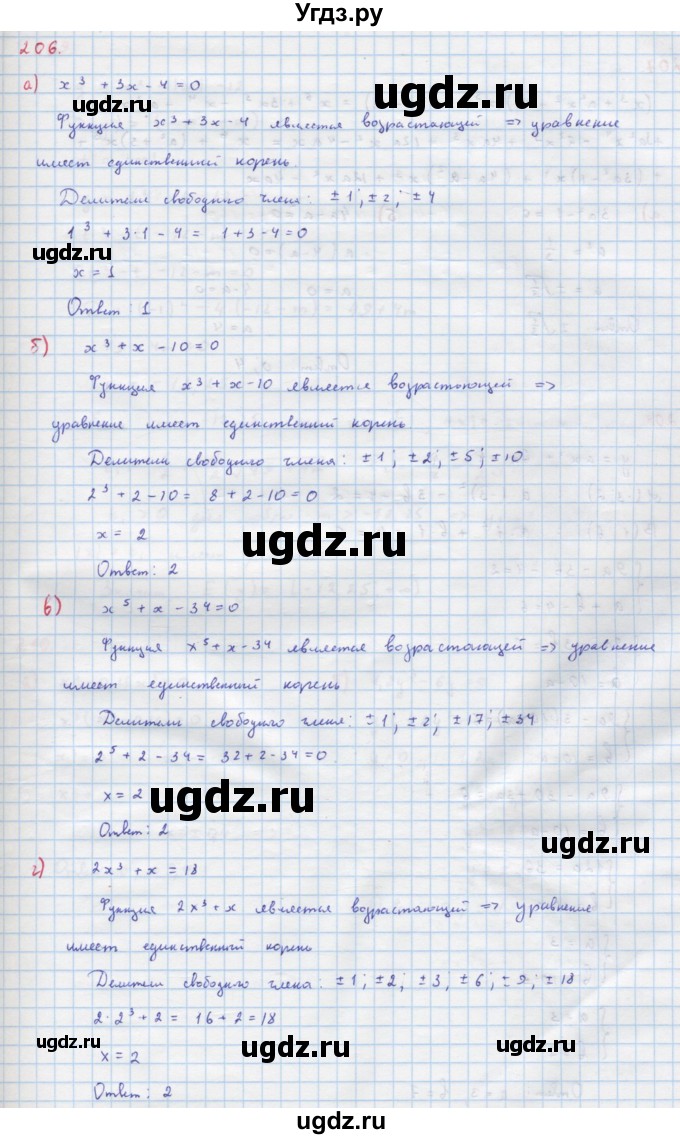 Угдз.ру
206.
а) x³ + 3x - 4 = 0
ugdz.ru
ugdz.ru
Функция x³ + 3x - 4 является возрастающей => уравнение
имеет единственный корень.
Делители свободного члена: ± 1; ± 2; ± 4
1³ + 3·1 - 4 = 1 + 3 - 4 = 0
ugdz.ru
x = 1
Ответ: 1
б) x³ + x - 10 = 0
ugdz.ru
Функция x³ + x - 10 является возрастающей =>
уравнение имеет единственный корень
Делители свободного члена: ± 1; ± 2; ± 5; ± 10
2³ + 2 - 10 = 8 + 2 - 10 = 0
x = 2
ugdz.ru
Ответ: 2
в) x⁵ + x - 34 = 0
Функция x⁵ + x - 34 является возрастающей => уравнение
имеет единственный корень
Делители свободного члена: ± 1; ± 2; ± 17; ± 34
2⁵ + 2 - 34 = 32 + 2 - 34 = 0
x = 2
ugdz.ru
Ответ: 2
ugdz.ru
г) 2x³ + x = 18
Функция 2x³ + x является возрастающей => уравнение
имеет единственный корень
Делители свободного члена: ± 1; ± 2; ± 3; ± 6; ± 9; ± 18
2·2³ + 2 = 16 + 2 = 18
ugdz.ru
ugdz.ru
ugdz.ru
x = 2
Ответ: 2
ugdz.ru